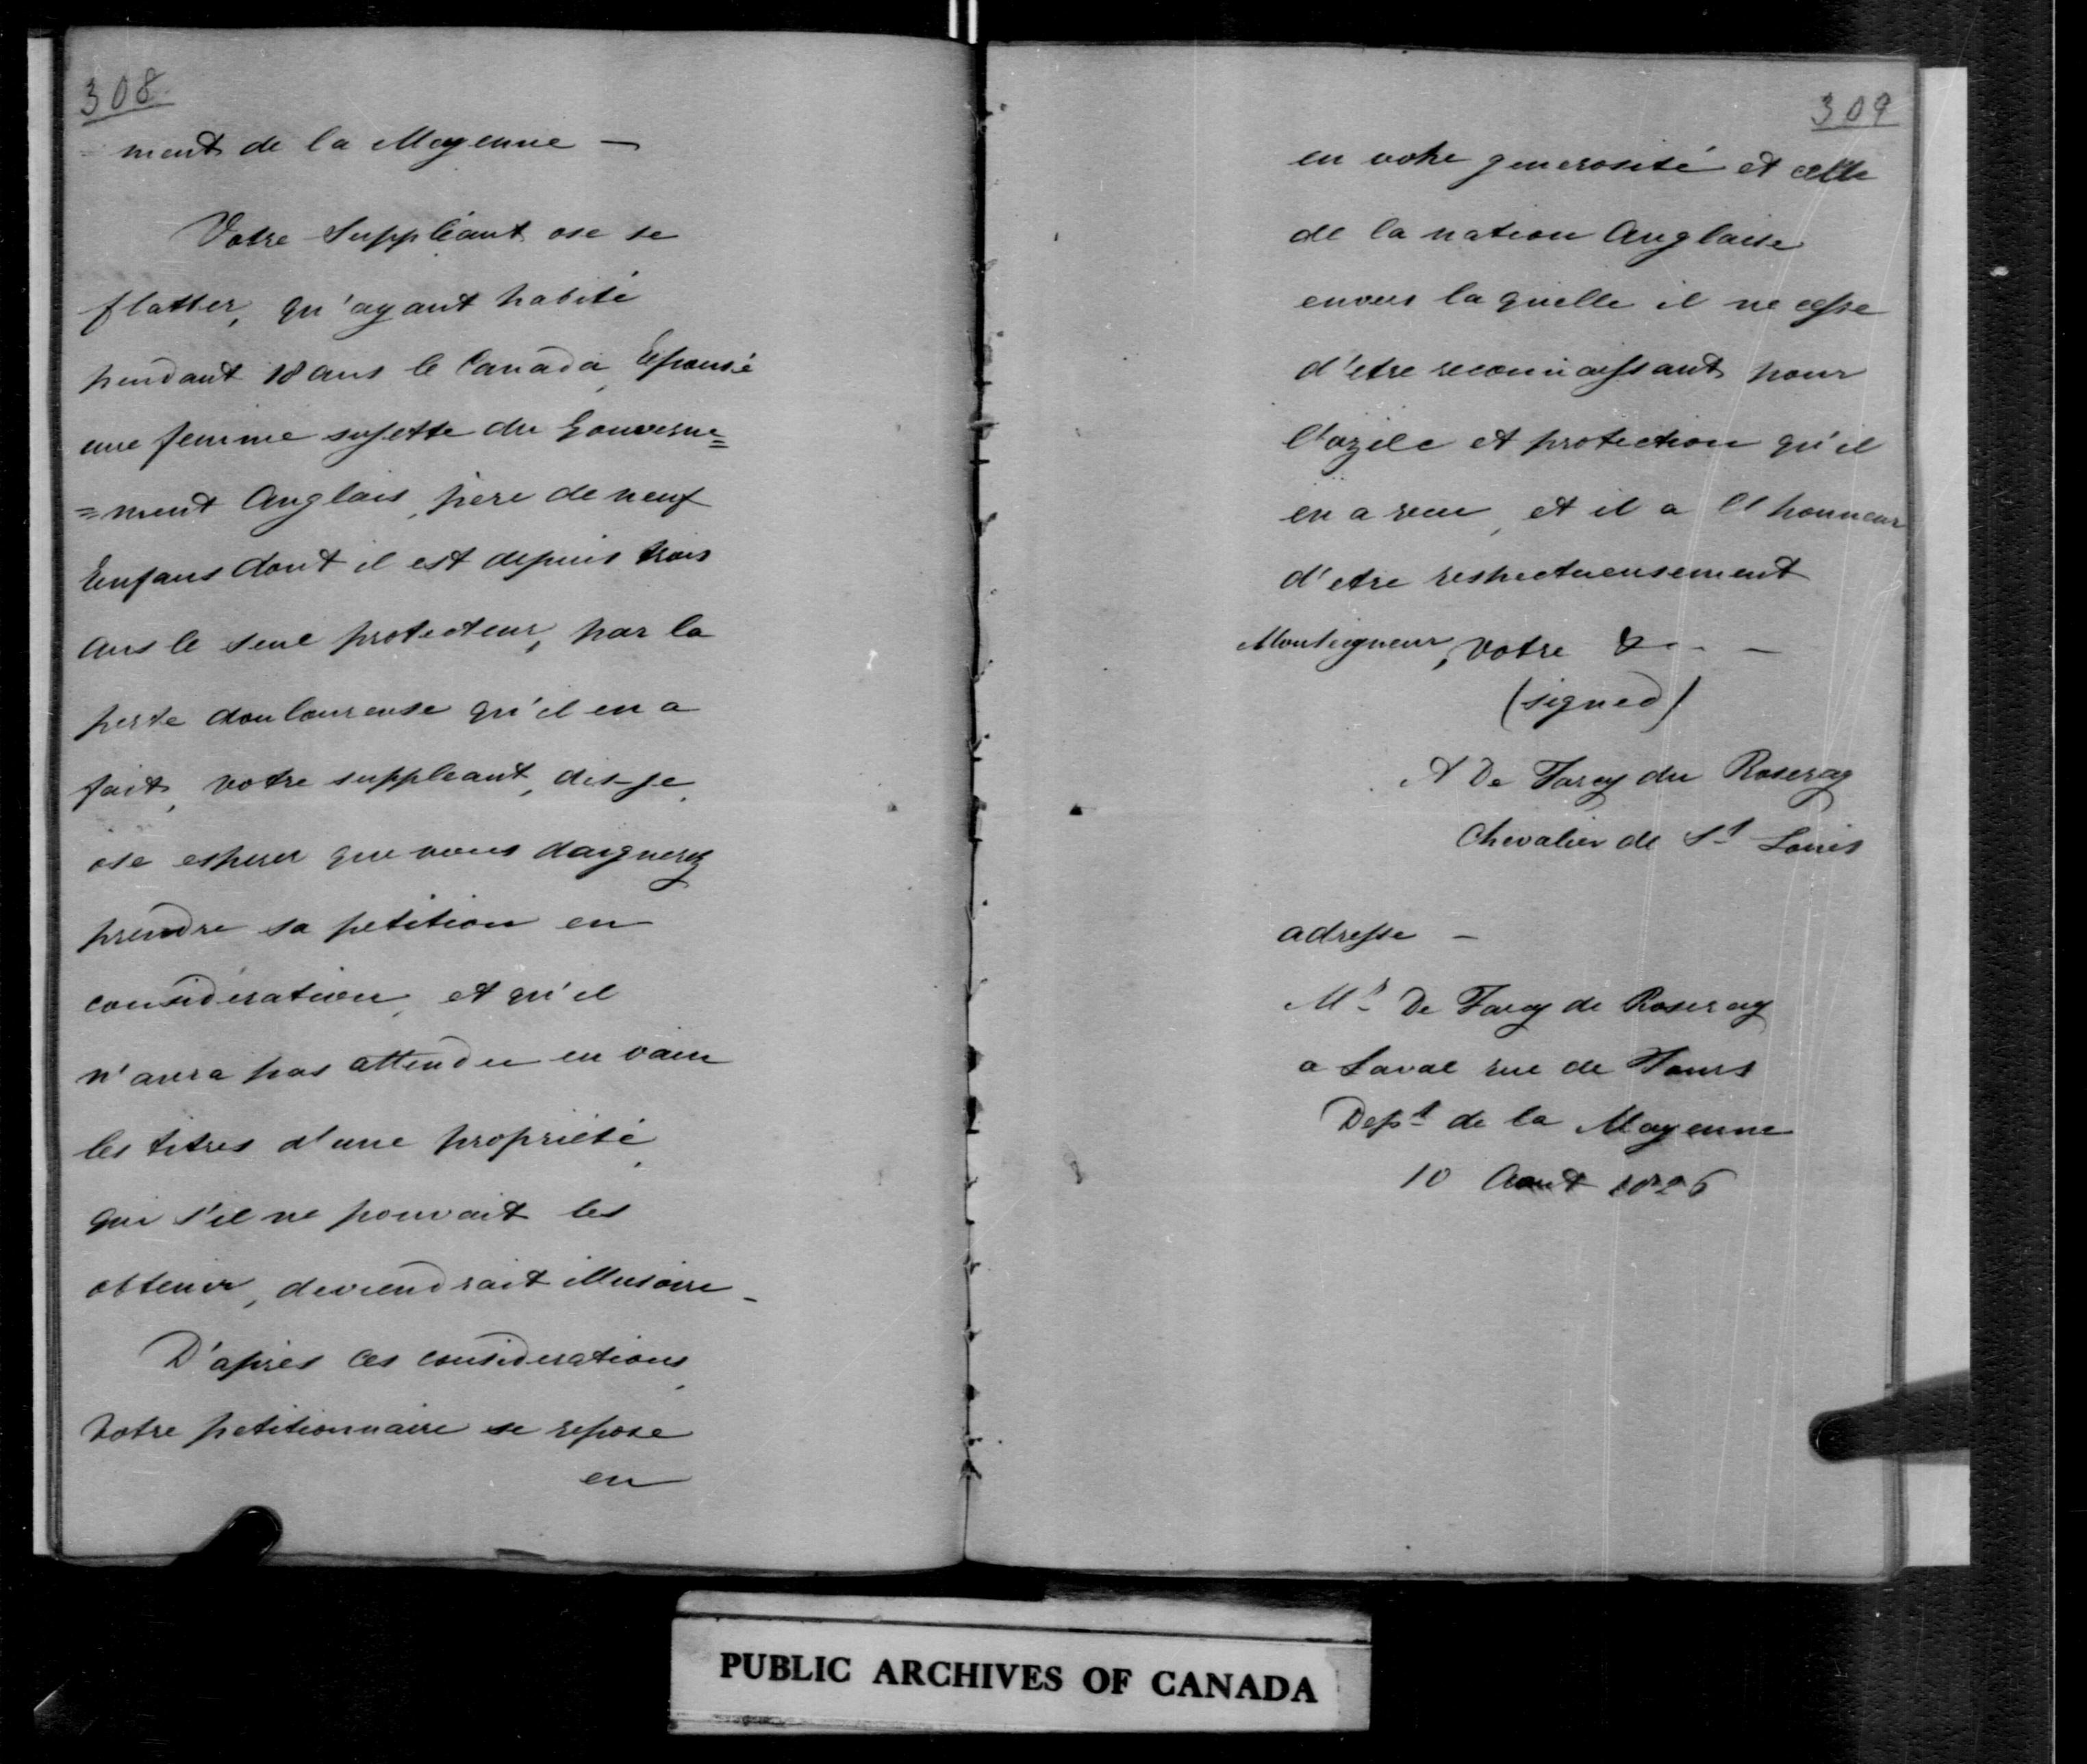 308
ment de la Mayenne —
Votre Suppléant ose se
flatter, qu'ayant habité
pendant 18 ans le Canada, Epousé
une femme sujette du Gouverne=
=ment Anglais, père de neuf
Enfans dont il est depuis trois
ans le seul protecteur, par la
perte douloureuse qu'il en a
fait, votre suppleant, dis-je,
ose esperer que vous daignerez
prendre sa petition en
considération, et qu'il
n'aura pas attendu en vain
les titres d'une propriété,
qui s'il ne pouvait les
obtenir, deviendrait illusoire –
D'après ces considerations,
Votre petitionnaire se repose
en
309
en votre generosité et celle
de la nation Anglaise
envers laquelle il ne cesse
d'etre reconnaissant pour
l'azile et protection qu'il
en a recu, et il a l'honneur
d'etre respectueusement
Monseigneur, votre &. . –
(signed)
A De Farcy du Roseray
Chevalier de St Louis
adresse –
Mr De Farcy de Roseray
a Laval rue de Tours
Dept de la Mayenne
10 Aout 1826
PUBLIC ARCHIVES OF CANADA